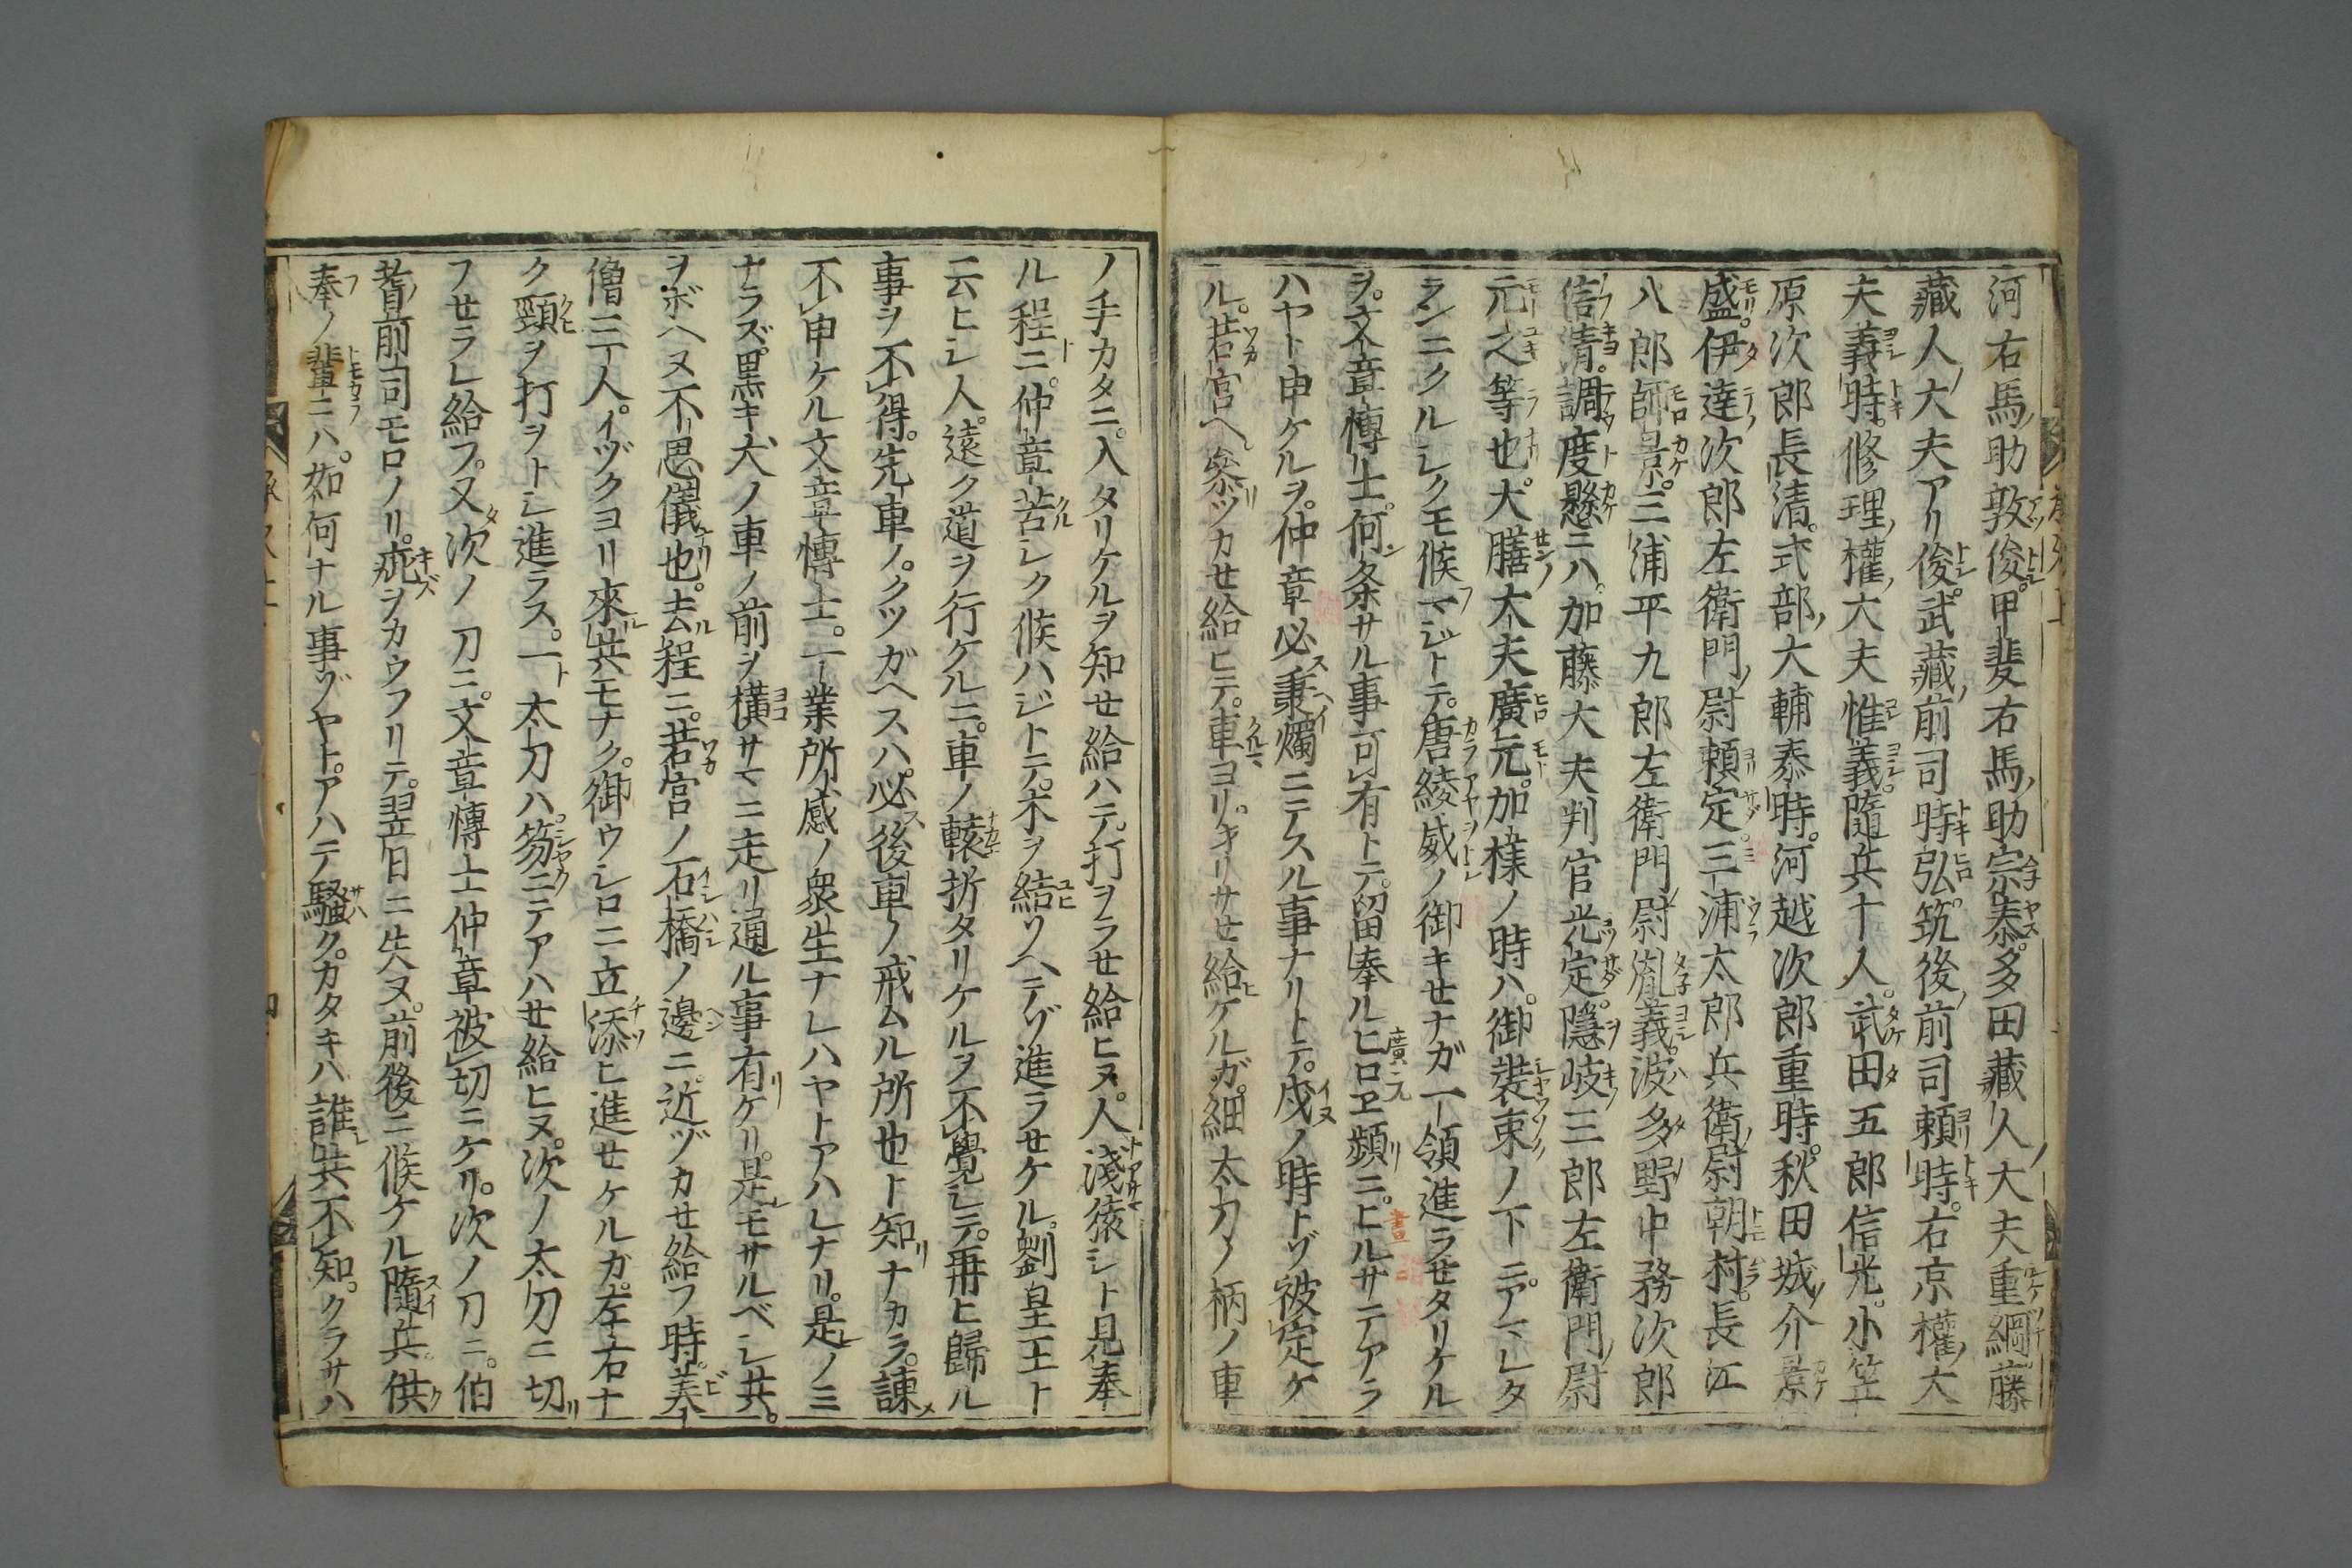 河右馬ノ助敦俊。甲斐右馬ノ助宗泰。多田藏人大夫重綱。藤
藏人ノ大夫アリ俊。武藏ノ前司時弘。筑後ノ前司頼時。右京權ノ大
夫義時。修理ノ權ノ大夫惟義。隨兵十人。武田五郎信光。小笠
原次郎長清。式部ノ大輔泰時。河越次郎重時。秋田城ノ介景
盛。伊達次郎左衛門ノ尉頼定。三浦太郎兵衛ノ尉朝村。長江
八郎師景。三浦平九郎左衛門ノ尉胤義。波多野中務次郎
信清。調度懸ニハ。加藤大夫判官光定。隱岐三郎左衛門ノ尉
元之等也。大膳大夫廣元。加樣ノ時ハ。御裝束ノ下ニ。アマレタ
ランニクルシクモ候マジトテ。唐綾威ノ御キセナガ一領進ラセタリケル
ヲ。文章博士。何条サル事可有トテ。留奉ルヒロヱ頻ニ。ヒルサテアラ
ハヤト申ケルヲ。仲章必秉燭ニテスル事ナリトテ。戌ノ時トゾ被定ケ
ル。若宮ヘ參ツカセ給ヒテ。車ヨリ。キリサセ給ケルガ。細太刀ノ柄ノ車
ノ手カタニ。入タリケルヲ知セ給ハテ。打ヲラセ給ヒヌ。人淺猿シト見奉
ル程ニ。仲章苦シク候ハジトテ。木ヲ結リヘテゾ進ラセケル。劉皇王ト
云ヒシ人。遠ク道ヲ行ケルニ。車ノ轅折タリケルヲ不覺シテ。再ヒ歸ル
事ヲ不得。先車ノ。クツガヘスハ。必後車ノ戒ムル所也ト知ナカラ。諫
不申ケル文章博士。一業所感ノ衆生ナレハヤトアハレナリ。是ノミ
ナラズ。黒キ犬ノ車ノ前ヲ横サマニ走リ通ル事有ケリ。是モサルベシ共。
ヲボヘヌ不思儀也。去程ニ。若宮ノ石橋ノ邊ニ。近ヅカセ給フ時。美
僧三人。イヅクヨリ來共モナク。御ウシロニ立添ヒ進セケルガ。左右ナ
ク頸ヲ打ヲトシ進ラス。一太刀ハ。笏ニテアハセ給ヒヌ。次ノ太刀ニ切
フセラレ給フ。又次ノ刀ニ。文章博士仲章被切ニケリ。次ノ刀ニ。伯
耆前司モロノリ。疵ヲカウフリテ。翌日ニ失ヌ。前後ニ候ケル隨兵。供
奉ノ輩ニハ。如何ナル事ゾヤト。アハテ騷ク。カタキハ誰共不知。クラサハ